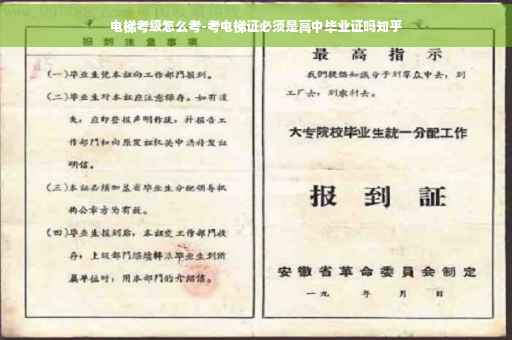 电梯考级怎么考-考电梯证必须是高中毕业证吗知乎
报到注意事项
(一)毕业生凭本证向工作部门报到。
(二)毕业生对本证应注意保存。如有遗
失,应即登报声明作废,并报告工
作部门和向原发证机关申请补发证
明信。
(三)本证必须加盖省毕业生分配领导机
构公章方为有效。
(四)毕业生报到后,本证交工作部门收
存;上级部门
毕业生到所
属单位时,用本部门的介绍信。
最高指示
我们提倡知识分子到群众中去,到
工厂去,到农村去。
大专院校毕业生统一分配工作
报到证
安徽省革命委员会制定
一九 年 月 日